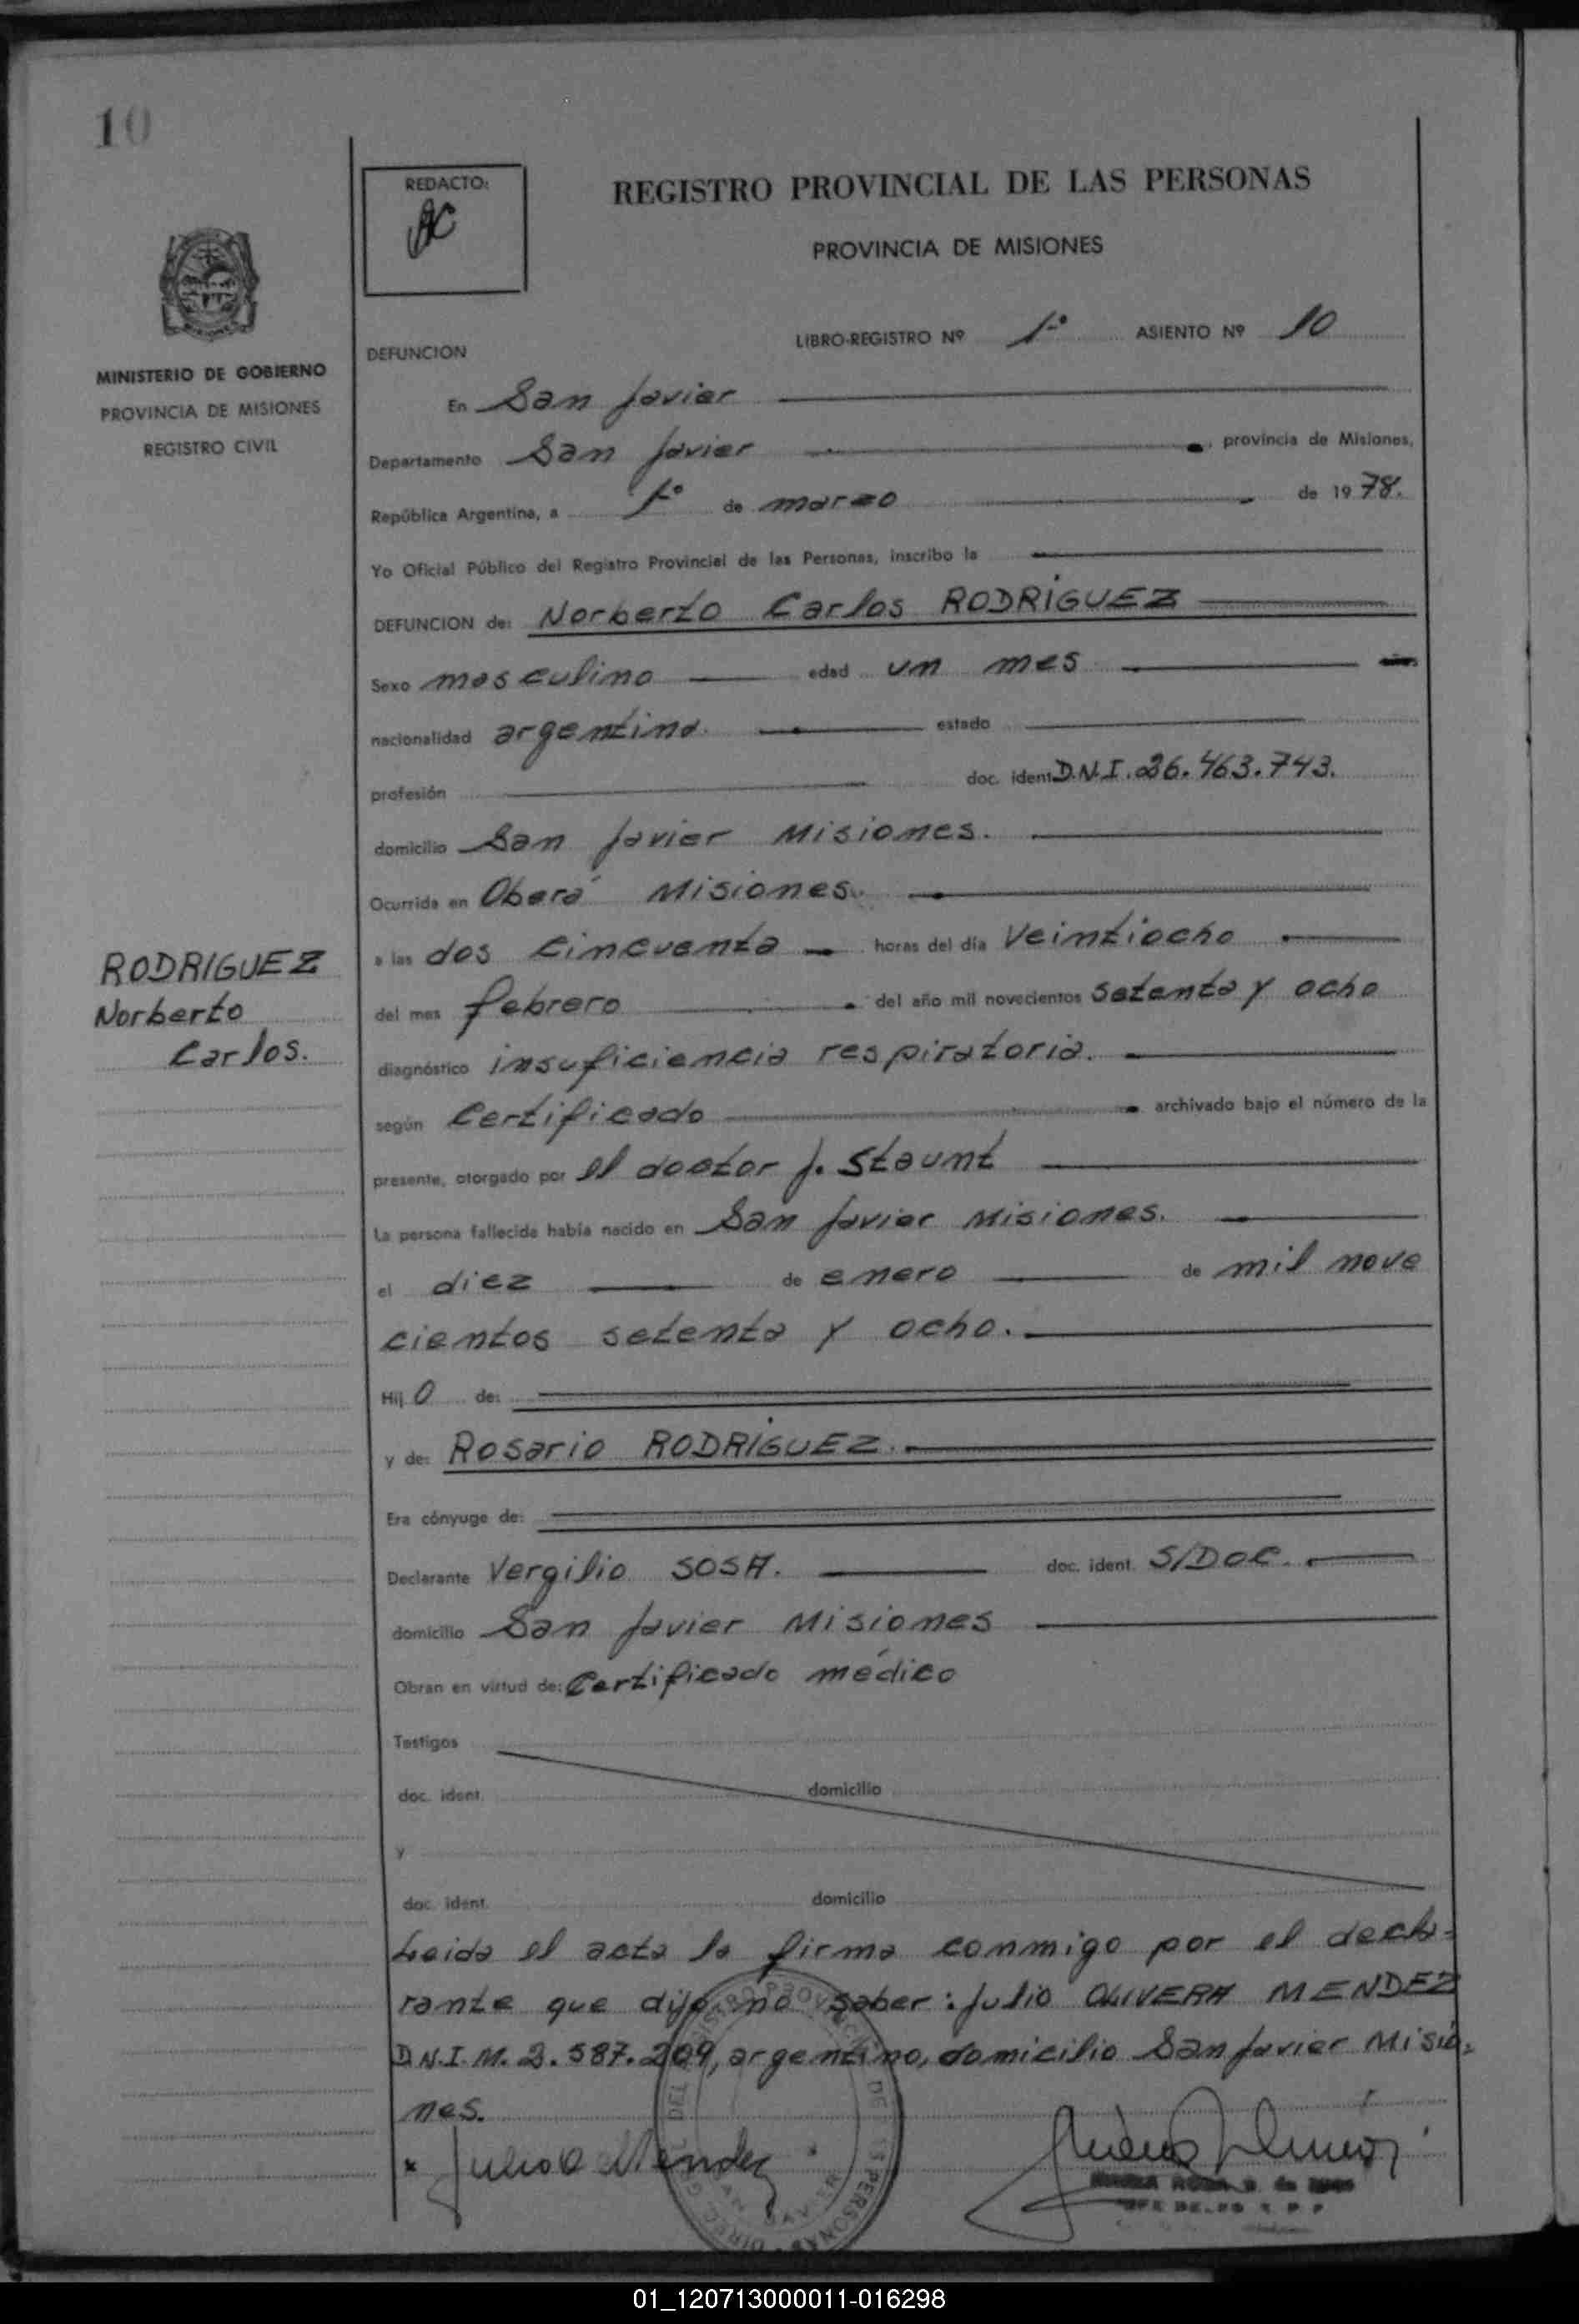 10
REDACTO:
REGISTRO PROVINCIAL DE LAS PERSONAS
PROVINCIA DE MISIONES
MINISTERIO DE GOBIERNO
PROVINCIA DE MISIONES
REGISTRO CIVIL
LIBRO-REGISTRO Nº 1º ASIENTO Nº 10
DEFUNCION
En San Javier
Departamento San Javier, provincia de Misiones,
República Argentina, a 1º de marzo de 1978.
Yo Oficial Público del Registro Provincial de las Personas, inscribo la
DEFUNCION de: Norberto Carlos RODRIGUEZ
Sexo masculino edad un mes
nacionalidad argentina. estado
profesión doc. ident. D.N.I. 26.463.743.
domicilio San Javier Misiones.
Ocurrida en Oberá Misiones.
a las dos cincuenta horas del día veintiocho
del mes febrero del año mil novecientos setenta y ocho
diagnóstico insuficiencia respiratoria.
según Certificado archivado bajo el número de la
presente, otorgado por el doctor J. Staunt
La persona fallecida había nacido en San Javier Misiones.
el diez de enero de mil nove
cientos setenta y ocho.
Hij O de:
y de: Rosario RODRIGUEZ.
Era cónyuge de:
Declarante Vergilio SOSA. doc. ident. S/DOC.
domicilio San Javier Misiones
Obran en virtud de: Certificado médico
Testigos
doc. ident. domicilio
y
doc. ident. domicilio
Leida el acta la firma conmigo por el decla-
rante que dijo no saber: Julio OLIVERA MENDEZ
D.N.I. M. 2.587.209, argentino, domicilio San Javier Misio-
nes.
RODRIGUEZ
Norberto
Carlos.
x Julio O Mendez
01_120713000011-016298